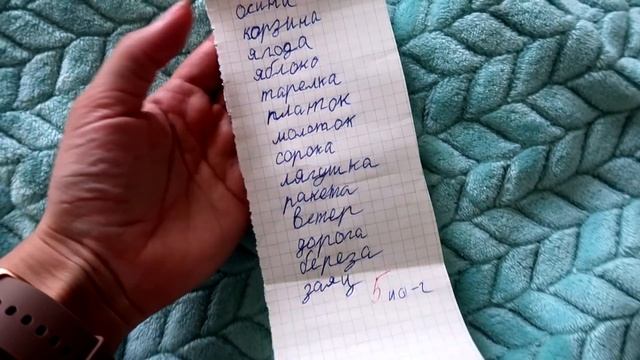 корзина
ягода
яблоко
тарелка
платок
молоток
сорока
лягушка
ракета
ветер
дорога
береза
заяц 5